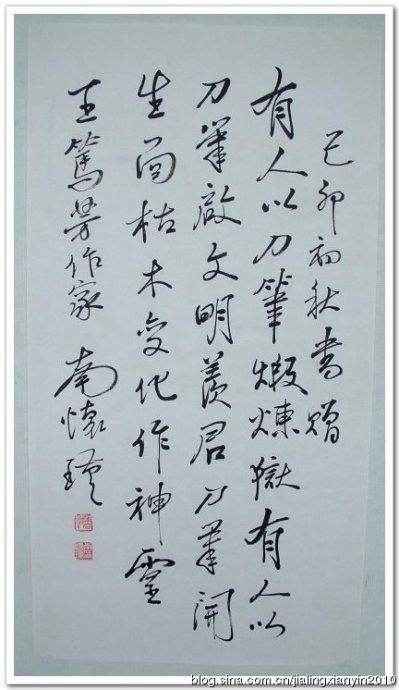 己卯初秋書贈
有人以刀筆煅煉獄有人以
刀筆啟文明羨君刀筆開
生面枯木变化作神靈
王篤芳作家 南懷瑾
blog.sina.com.cn/jialingxianyin2010